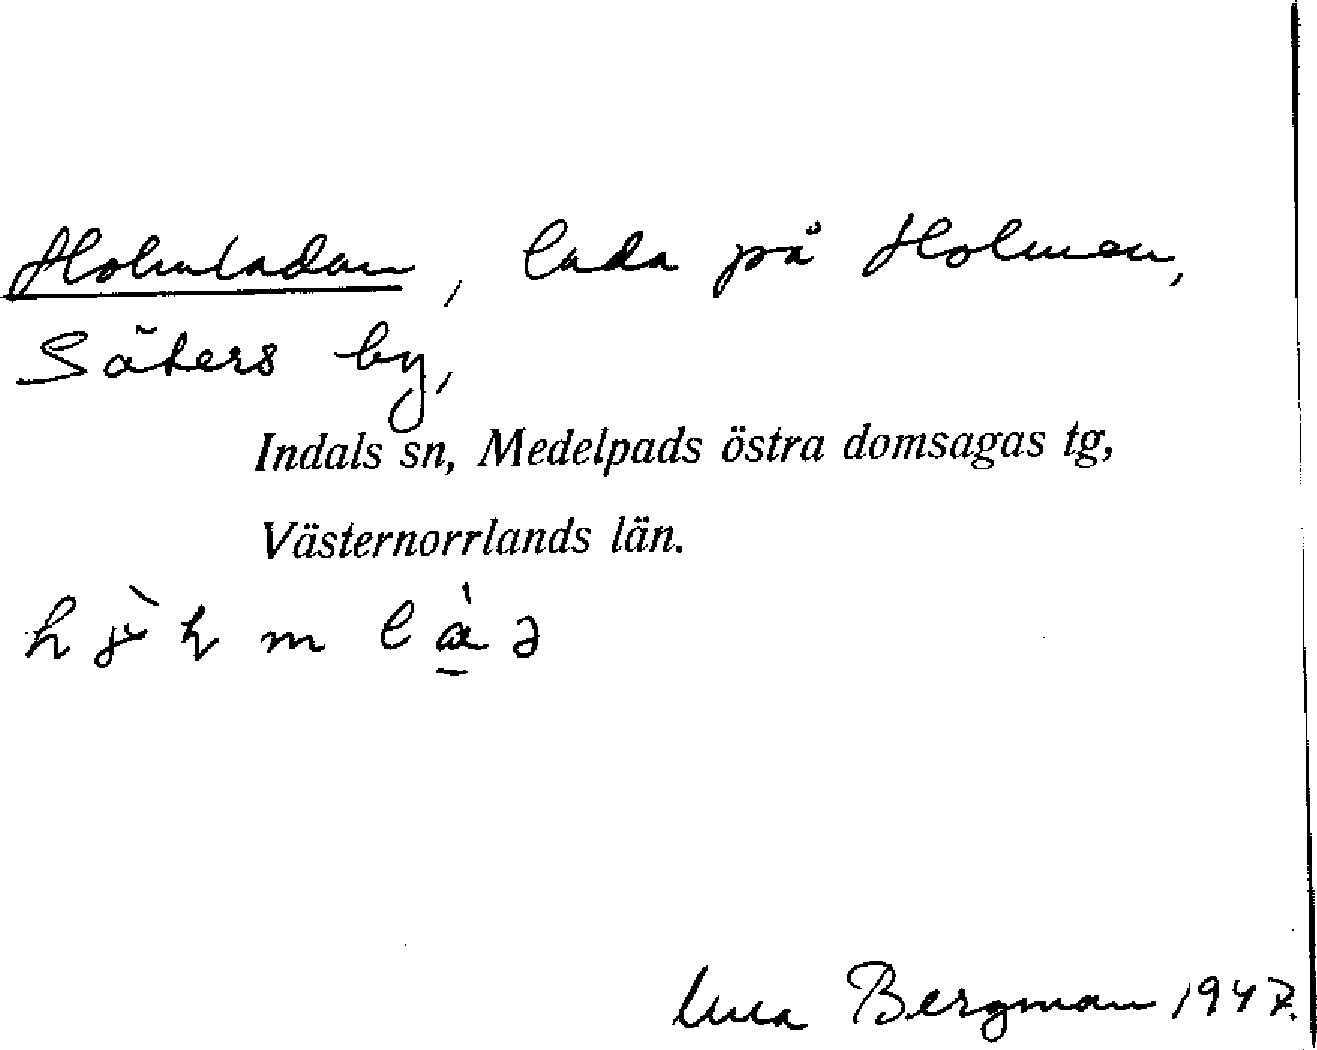 Holmladan, lada på Holmen,
Säters by,
Indals sn, Medelpads östra domsagas tg,
Västernorrlands län.
Bergman 1947.